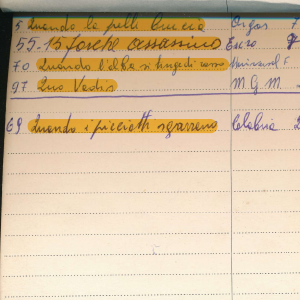 5 Quando la pelle brucia Orgos F
55-15 forche assassino Euro 9
70 Quando l'alba si tinge di rosso Universal F
97 Quo Vadis M.G.M.
69 Quando i picciotti sgarrano Calabria 2